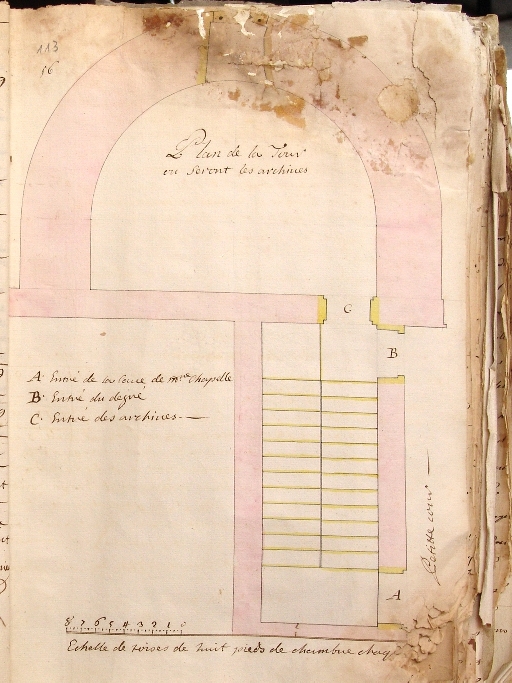 113
16
Plan de la Tour
ou seront les archives
C
B
A Entré de la de mre Chapelle
B Entré du degré
C Entré des archives
petitte cour
A
8 7 6 5 4 3 2 1 0
Echelle de toises de huit pieds de chambre